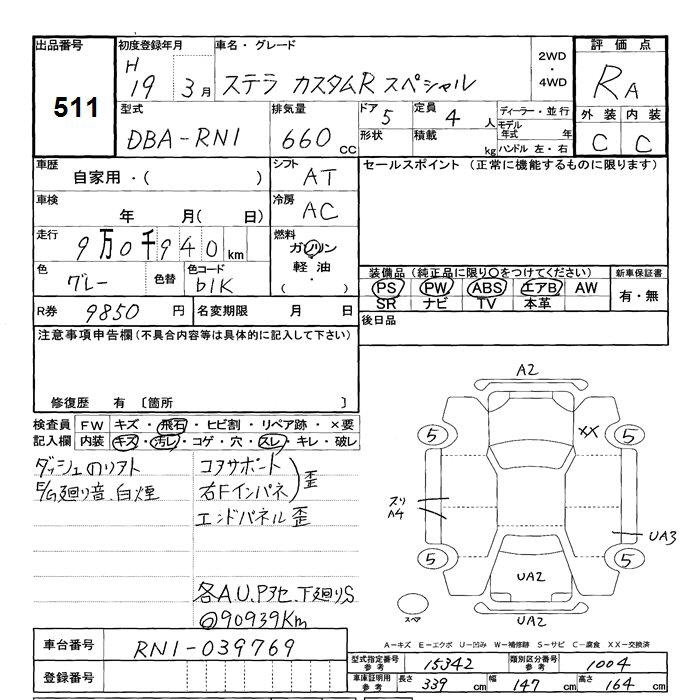 出品番号 初度登録年月 車名・グレード 2WD・4WD 評価点
511 H 19 3月 ステラ カスタムR スペシャル RA
型式 排気量 ドア 5 定員 4人 ディーラー・並行 外装 内装
DBA-RN1 660cc 形状 積載 kg モデル年式 年 C C
ハンドル 左・右
車歴 自家用・( ) シフト AT セールスポイント (正常に機能するものに限ります)
車検 年 月( 日) 冷房 AC
走行 9万0千940km 燃料 ガソリン 軽油・( )
色 グレー 色替 色コード blK 装備品 (純正品に限り○をつけてください) 新車保証書
PS PW ABS エアB AW 有・無
SR ナビ TV 本革
R券 9850円 名変期限 月 日 後日品
注意事項申告欄(不具合内容等は具体的に記入して下さい)
修復歴 有 〔箇所 〕
検査員 FW キズ・飛石・ヒビ割・リペア跡・×要
記入欄 内装 キズ・汚レ・コゲ・穴・スレ・キレ・破レ
ダッシュのリフト コアサポート
E/G廻り音、白煙 右Fインパネ 歪
エンドパネル歪
各A.U.Pヌセ、下廻りS
@90939Km
A2
5 XX 5
スリ
A4
UA3
5 5
UA2
スペア UA2
A-キズ E-エクボ U-凹み W-補修跡 S-サビ C-腐食 XX-交換済
車台番号 RN1-039769
登録番号
型式指定番号 参考 15342 類別区分番号 参考 1004
車庫証明用 参考 長さ 339cm 幅 147cm 高さ 164cm